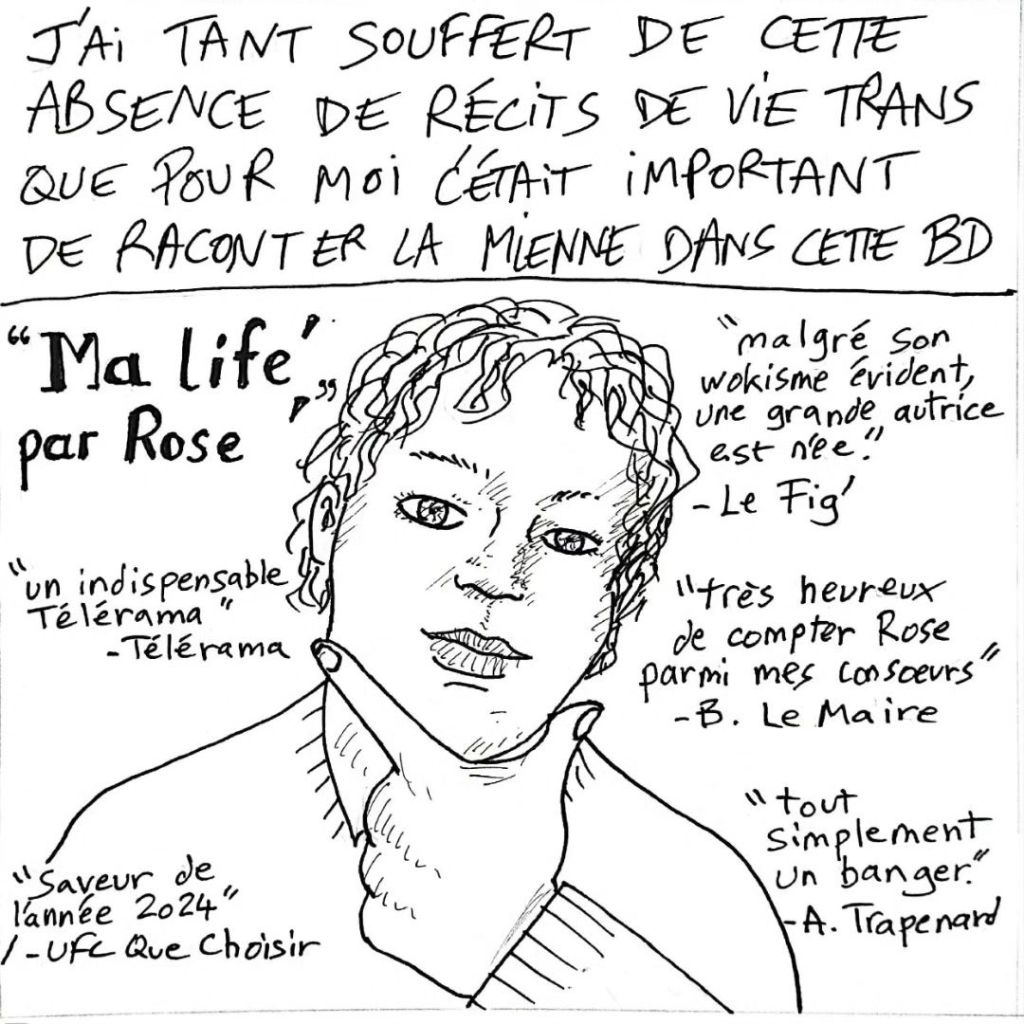 J'AI TANT SOUFFERT DE CETTE
ABSENCE DE RÉCITS DE VIE TRANS
QUE POUR MOI C'ÉTAIT IMPORTANT
DE RACONTER LA MIENNE DANS CETTE BD
"Ma life",
par Rose
"malgré son
wokisme évident,
une grande autrice
est née."
- Le Fig'
"un indispensable
Télérama"
- Télérama
"très heureux
de compter Rose
parmi mes consœurs"
- B. Le Maire
"tout
simplement
un banger."
- A. Trapenard
"Saveur de
l'année 2024"
- UFC Que Choisir